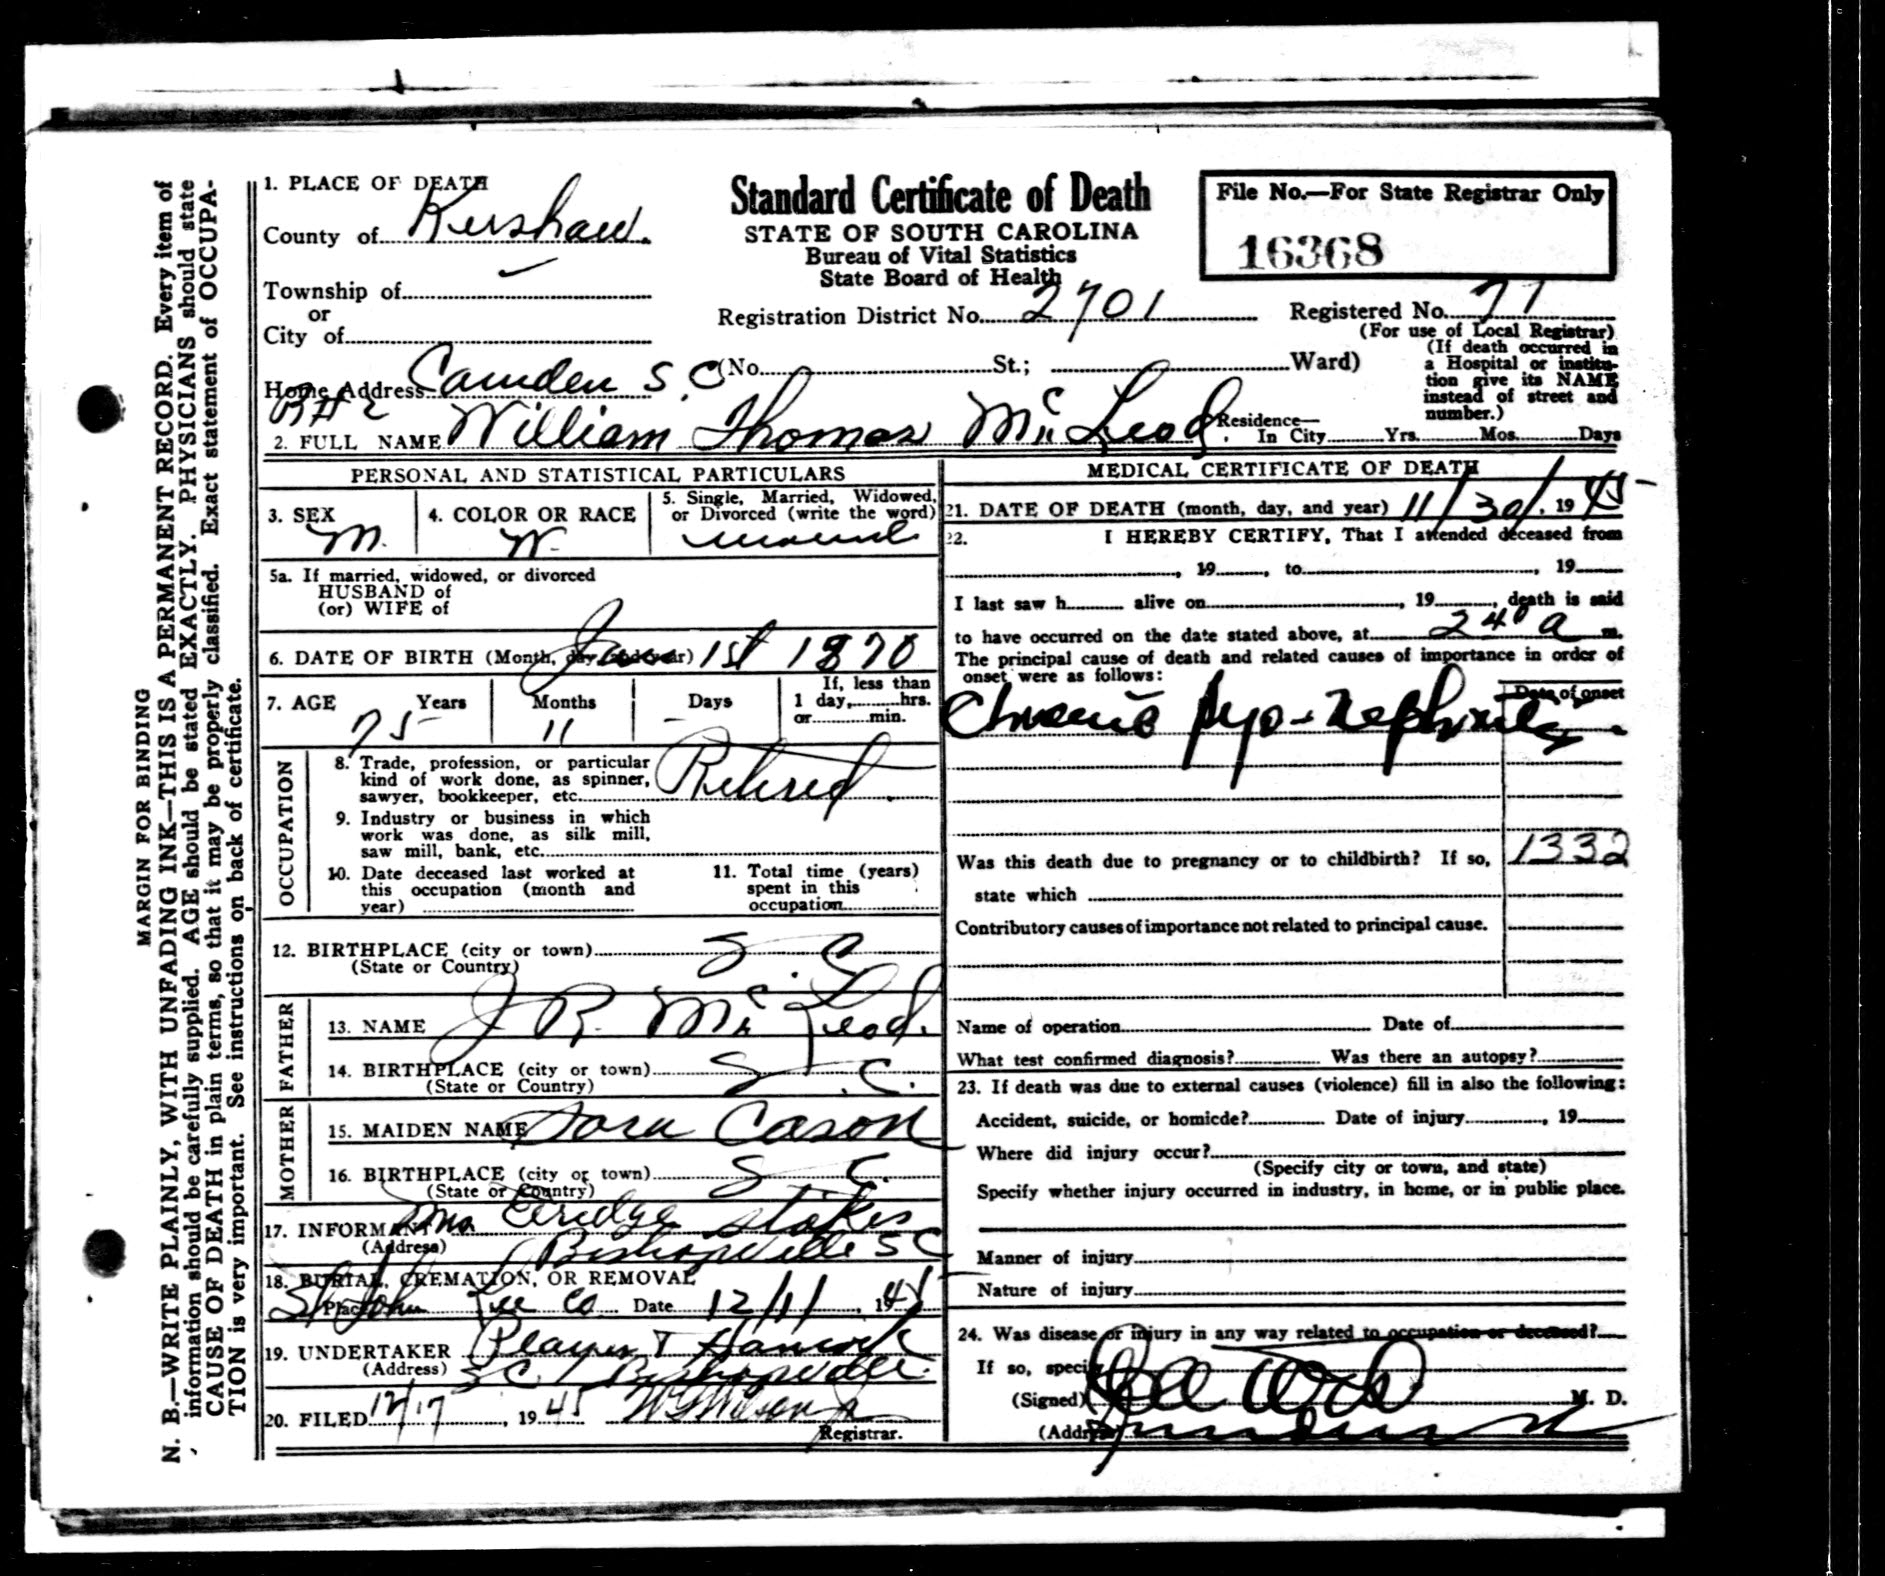 MARGIN FOR BINDING
N. B.—WRITE PLAINLY, WITH UNFADING INK—THIS IS A PERMANENT RECORD. Every item of
information should be carefully supplied. AGE should be stated EXACTLY. PHYSICIANS should state
CAUSE OF DEATH in plain terms, so that it may be properly classified. Exact statement of OCCUPA-
TION is very important. See instructions on back of certificate.
Standard Certificate of Death
STATE OF SOUTH CAROLINA
Bureau of Vital Statistics
State Board of Health
File No.—For State Registrar Only
16368
1. PLACE OF DEATH
County of Kershaw.
Township of
or
City of
Registration District No. 2701
Registered No. 77
(For use of Local Registrar)
Home Address Camden S.C (No. St.; Ward)
R#2
(If death occurred in
a Hospital or institu-
tion give its NAME
instead of street and
number.)
2. FULL NAME William Thomas Mc Leod.
Residence—
In City Yrs. Mos. Days
PERSONAL AND STATISTICAL PARTICULARS
3. SEX
M.
4. COLOR OR RACE
W.
5. Single, Married, Widowed,
or Divorced (write the word)
5a. If married, widowed, or divorced
HUSBAND of
(or) WIFE of
6. DATE OF BIRTH (Month, day and year) 1st 1870
7. AGE Years Months Days
75 11 -
If, less than
1 day, hrs.
or min.
OCCUPATION
8. Trade, profession, or particular
kind of work done, as spinner,
sawyer, bookkeeper, etc. Retired.
9. Industry or business in which
work was done, as silk mill,
saw mill, bank, etc.
10. Date deceased last worked at
this occupation (month and
year)
11. Total time (years)
spent in this
occupation
12. BIRTHPLACE (city or town) S.C
(State or Country)
FATHER
13. NAME J R. Mc Leod.
14. BIRTHPLACE (city or town) S.C.
(State or Country)
MOTHER
15. MAIDEN NAME Sara Cason
16. BIRTHPLACE (city or town) S C.
(State or Country)
17. INFORMANT Mrs. Elridge Stokes
(Address) Bishopville S C
18. BURIAL, CREMATION, OR REMOVAL
Place St John Lee Co. Date 12/1/, 1945
19. UNDERTAKER Hancock
(Address) S C Bishopville.
20. FILED 12/17, 1945
Registrar.
MEDICAL CERTIFICATE OF DEATH
21. DATE OF DEATH (month, day, and year) 11/30/, 1945
22. I HEREBY CERTIFY, That I attended deceased from
, 19 , to , 19
I last saw h alive on , 19 , death is said
to have occurred on the date stated above, at 240 a m.
The principal cause of death and related causes of importance in order of
onset were as follows:
Date of onset
Chronic pyo-nephritis.
1332
Was this death due to pregnancy or to childbirth? If so,
state which
Contributory causes of importance not related to principal cause.
Name of operation Date of
What test confirmed diagnosis? Was there an autopsy?
23. If death was due to external causes (violence) fill in also the following:
Accident, suicide, or homicde? Date of injury , 19
Where did injury occur?
(Specify city or town, and state)
Specify whether injury occurred in industry, in home, or in public place.
Manner of injury
Nature of injury
24. Was disease or injury in any way related to occupation or deceased?
If so, specify
(Signed) M. D.
(Address)